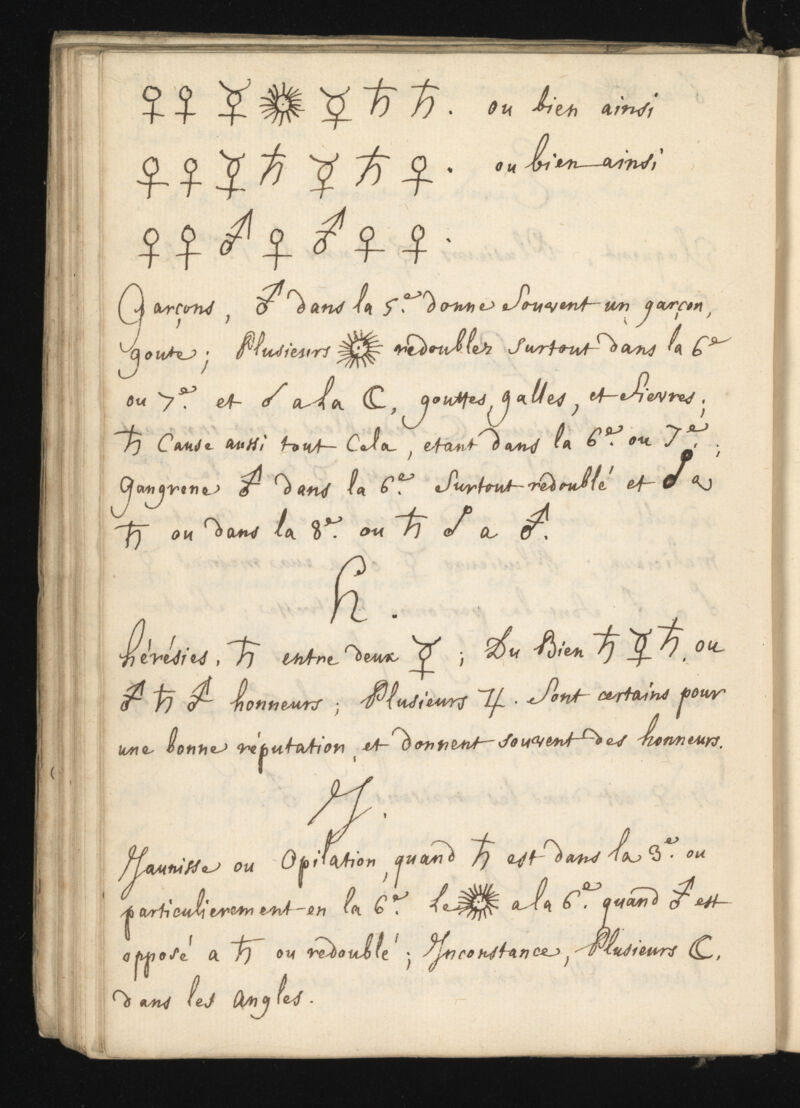 ♀ ♀ ☿ ☉ ☿ ♄ ♄. ou bien ainsi
♀ ♀ ☿ ♄ ☿ ♄ ♀. ou bien ainsi
♀ ♀ ♂ ♀ ♂ ♀ ♀.
Garçons, ♂ dans la 5.e donne Souvent un garçon,
goute; Plusieurs ☉ redoublez Surtout dans la 6e
ou 7.e et ☌ a La ☾, gouttes, galles, et fievres;
♄ Cause aussi tout Cela, etant dans la 6.e ou 7.e;
Gangrene ♂ dans la 6.e Surtout redoublé et ☌ a
♄ ou dans la 8.e ou ♄ ☌ a ♂.
h.
hérésies, ♄ entre deux ☿; Du Bien ♄ ☿ ♄, ou
♂ ♄ ♂ honneurs; Plusieurs ♃. Sont certains pour
une bonne réputation, et donnent souvent des honneurs.
J.
Jaunisse ou Opilation, quand ♄ est dans la 3.e ou
particulierement en la 6.e Le ☉ a la 6.e quand ♂ est
opposé a ♄ ou redoublé; Inconstance, Plusieurs ☾,
dans les Angles.